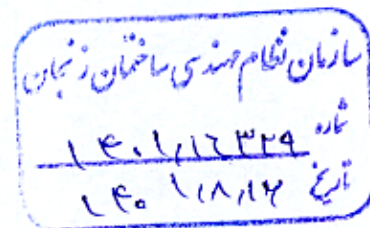 سازمان نظام مهندسی ساختمان زنجان
شماره ۱۴۰۱٫۱۶۳۲۹
تاریخ ۱۴۰۱٫۸٫۱۲